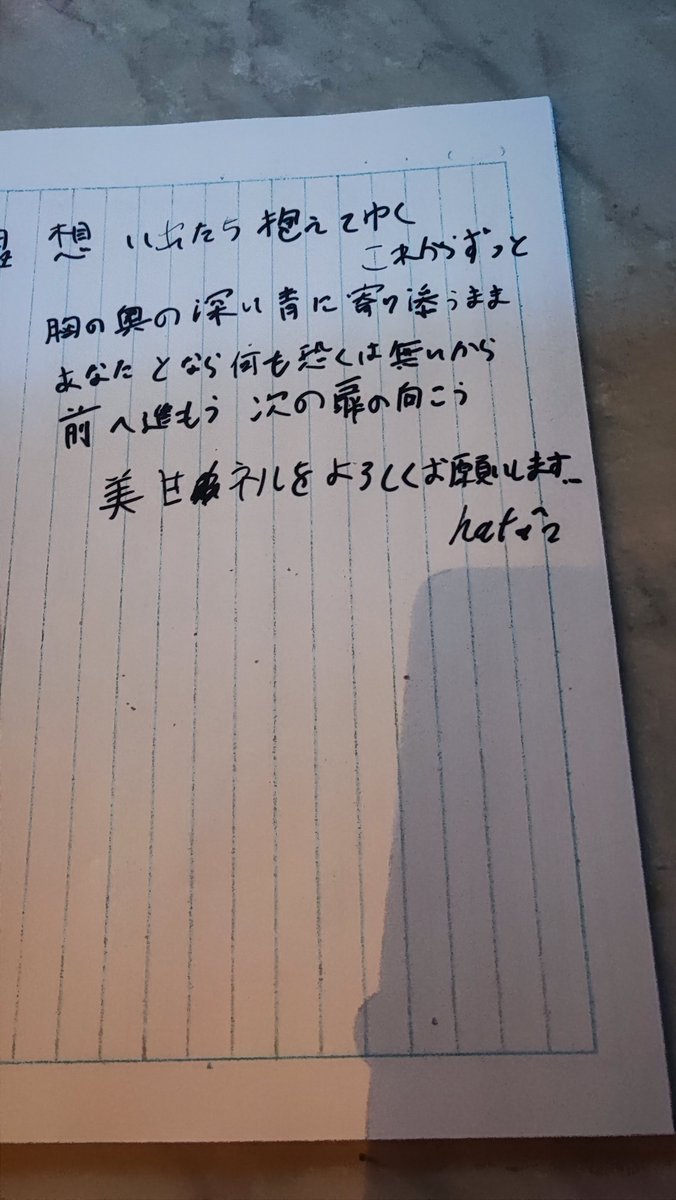 想いあたら抱えてゆく
これからずっと
胸の奥の深い青に寄り添うまま
あなたとなら何も恐くは無いから
前へ進もう 次の扉の向こう
美甘ネルをよろしくお願いします…